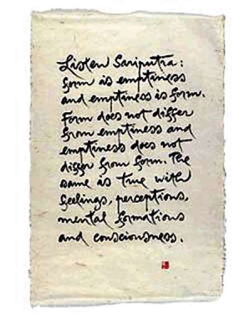 Listen Sariputra:
form is emptiness
and emptiness is form.
Form does not differ
from emptiness and
emptiness does not
differ from form. The
same is true with
feelings, perceptions,
mental formations
and consciousness.